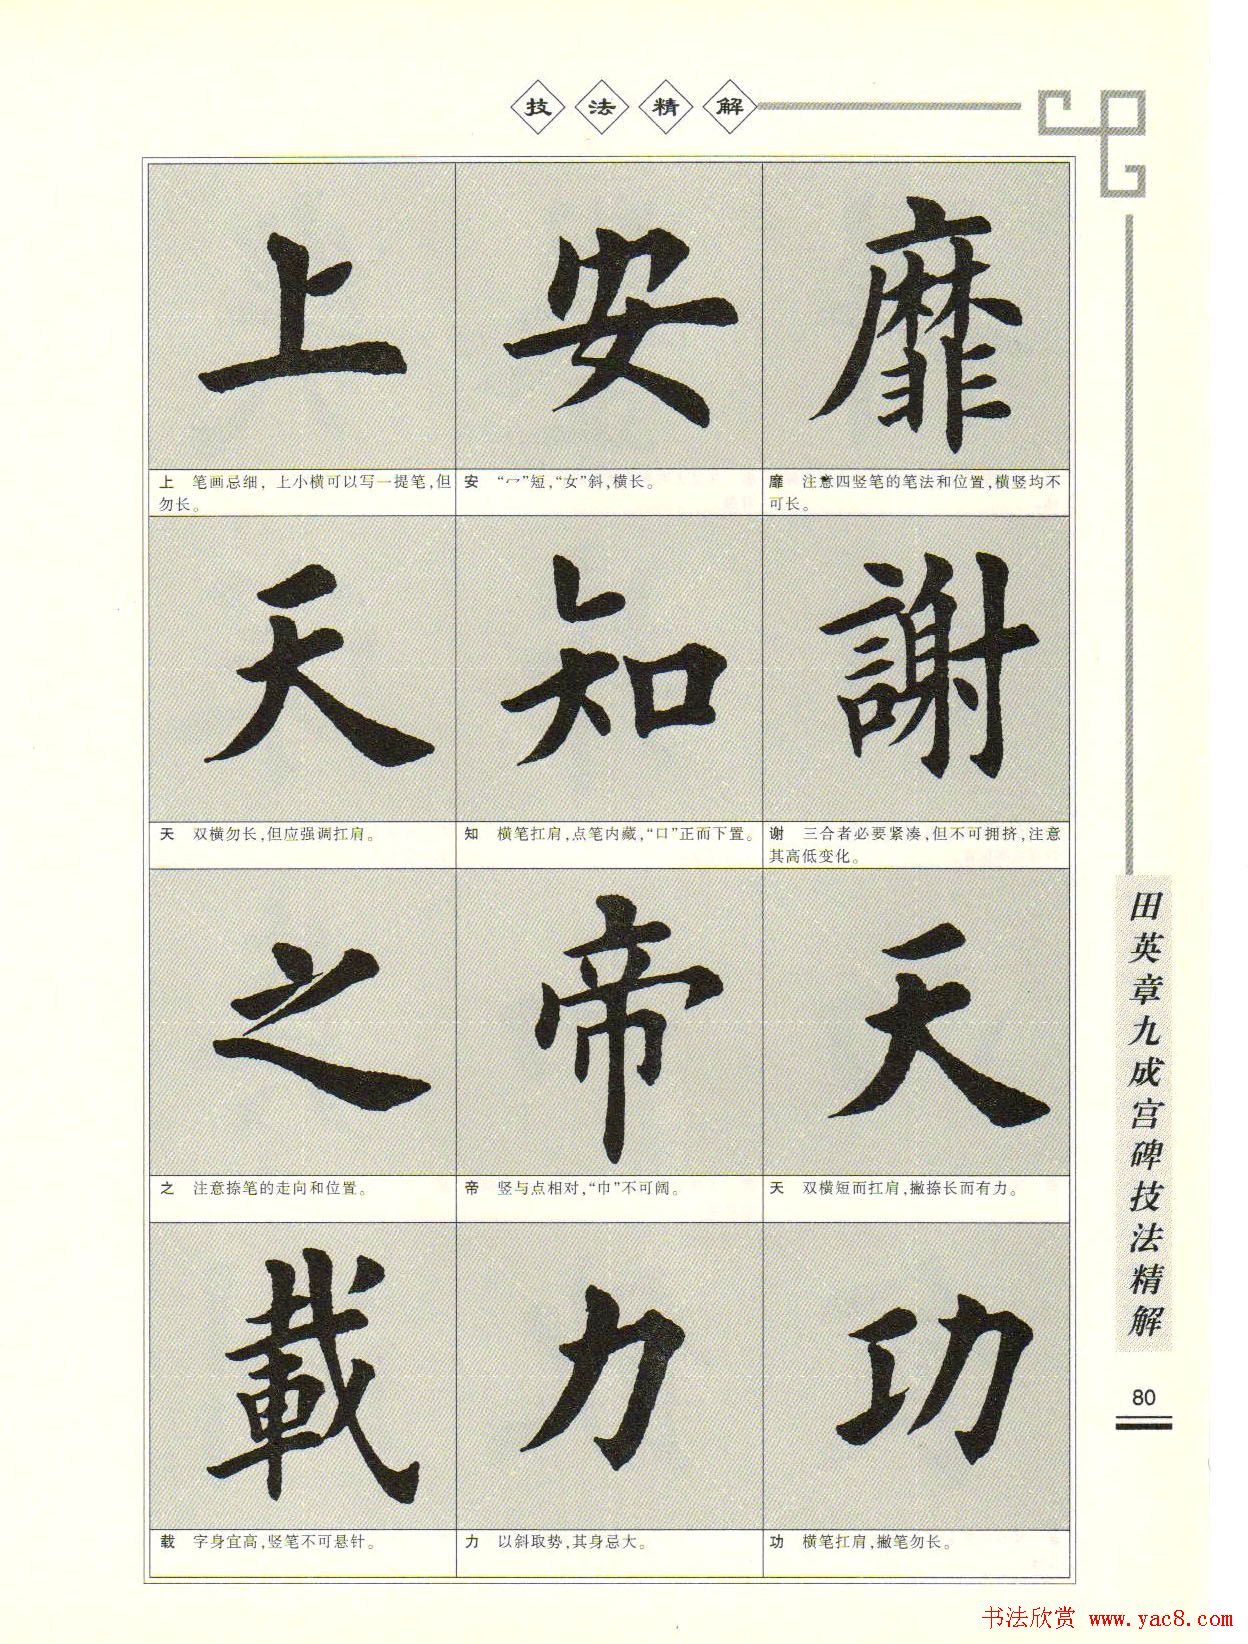 技法精解
上 安 靡
上 笔画忌细，上小横可以写一提笔，但
勿长。
安 “冖”短，“女”斜，横长。
靡 注意四竖笔的笔法和位置，横竖均不
可长。
天 知 謝
天 双横勿长，但应强调扛肩。
知 横笔扛肩，点笔内藏，“口”正而下置。
谢 三合者必要紧凑，但不可拥挤，注意
其高低变化。
之 帝 天
之 注意捺笔的走向和位置。
帝 竖与点相对，“巾”不可阔。
天 双横短而扛肩，撇捺长而有力。
載 力 功
载 字身宜高，竖笔不可悬针。
力 以斜取势，其身忌大。
功 横笔扛肩，撇笔勿长。
田英章九成宫碑技法精解
80
书法欣赏 www.yac8.com